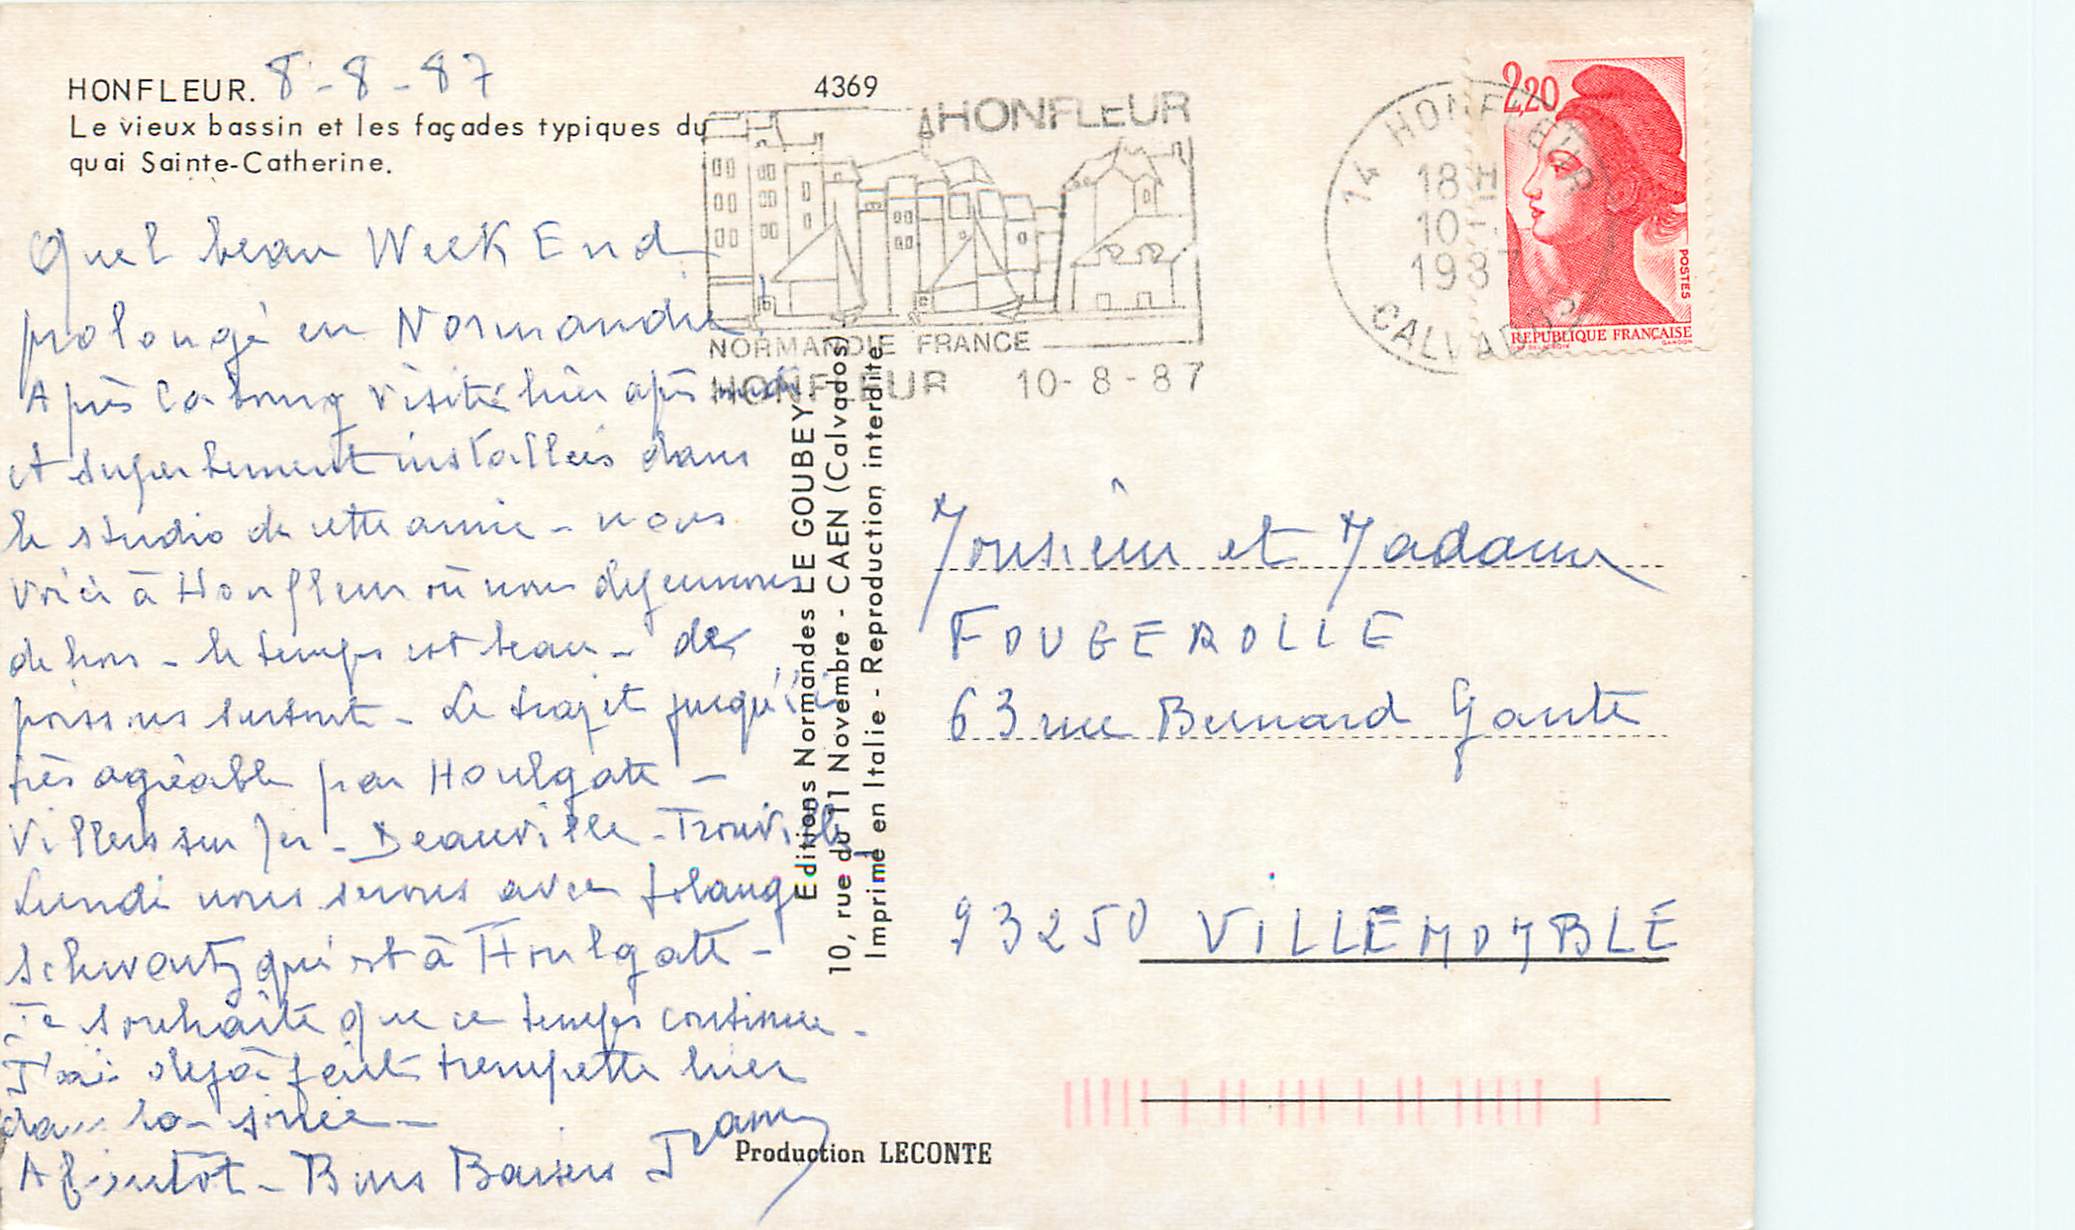 HONFLEUR. 8-8-87
Le vieux bassin et les façades typiques du
quai Sainte-Catherine.
4369
Quel beau Week End
prolongé en Normandie.
Après Cabourg visité hier après midi
et superbement installées dans
le studio de cette amie - nous
voici à Honfleur où nous déjeunons
dehors - le temps est beau - des
poissons surtout - Le trajet jusqu'ici
très agréable par Houlgate -
Villers sur Mer - Deauville - Trouville
Lundi nous serons avec Solange
Schwartz qui est à Houlgate -
Je souhaite que ce temps continue -
J'ai déjà fait trempette hier
dans la soirée -
A bientôt - Bons Baisers
HONFLEUR
NORMANDIE FRANCE
HONFLEUR 10-8-87
14 HONFLEUR
18 H
10-
1987
CALVADOS
2,20
POSTES
REPUBLIQUE FRANÇAISE
GANDON
Editions Normandes LE GOUBEY
10, rue du 11 Novembre - CAEN (Calvados)
Imprimé en Italie - Reproduction interdite
Monsieur et Madame
FOUGEROLLE
63 rue Bernard Gante
93250 VILLEMOMBLE
Production LECONTE